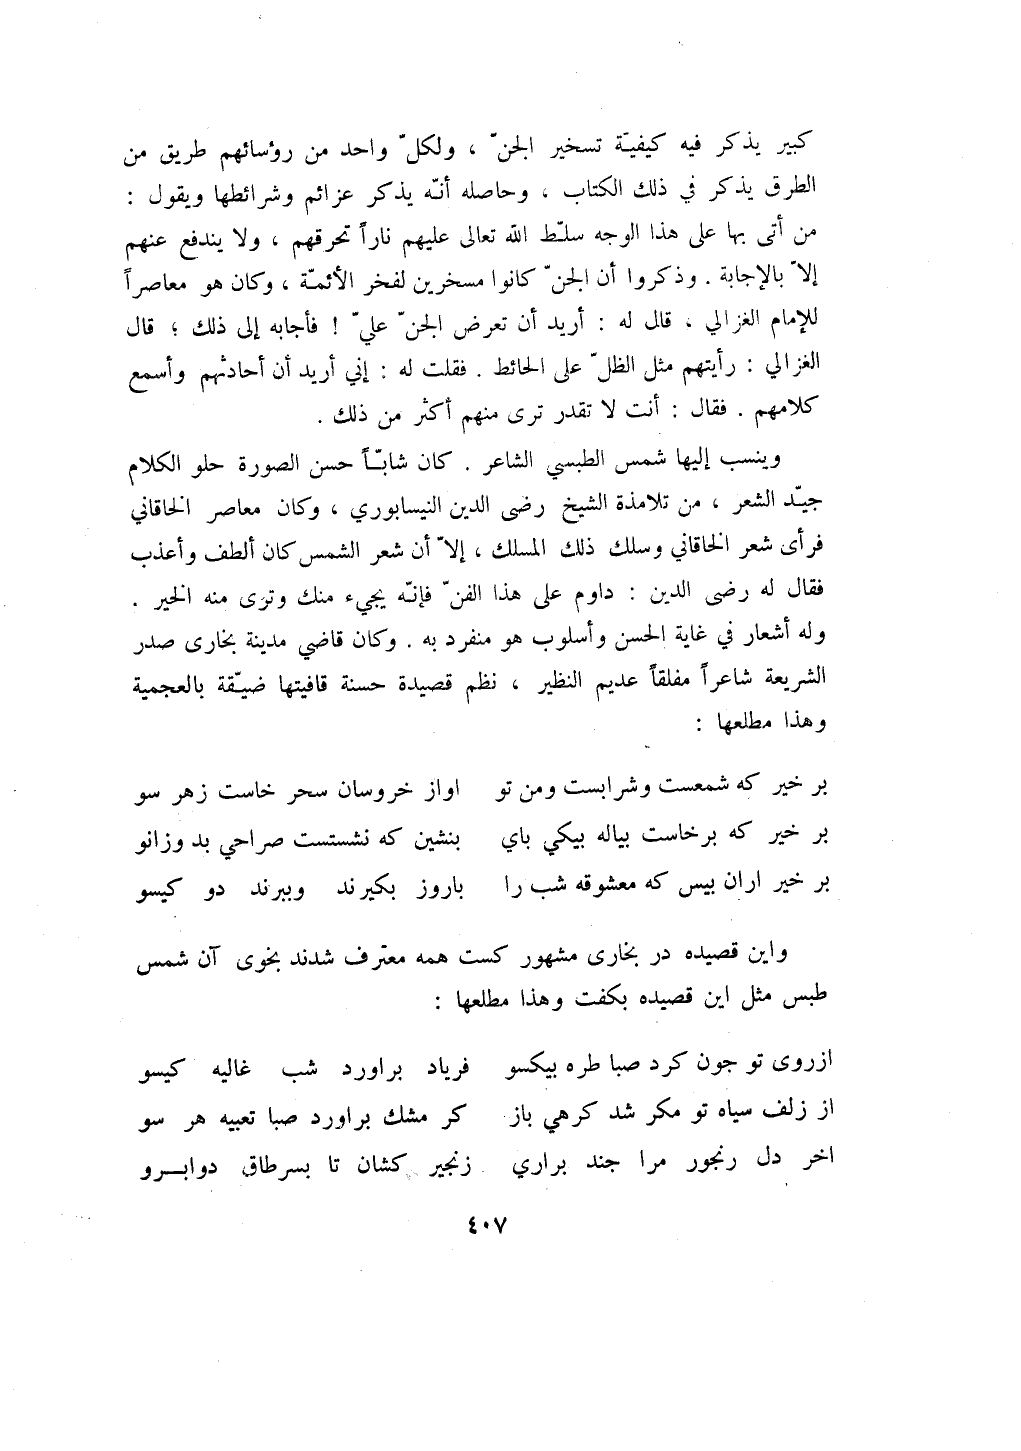 كبير يذكر فيه كيفيّة تسخير الجنّ ، ولكلّ واحد من روسائهم طريق من
الطرق يذكر في ذلك الكتاب ، وحاصله أنّه يذكر عزائم وشرائطها ويقول :
من أتى بها على هذا الوجه سلّط الله تعالى عليهم ناراً تحرقهم ، ولا يندفع عنهم
إلاّ بالإجابة . وذكروا أن الجنّ كانوا مسخرين لفخر الأئمّة ، وكان هو معاصراً
للإمام الغزالي ، قال له : أريد أن تعرض الجنّ عليّ ! فأجابه إلى ذلك ؛ قال
الغزالي : رأيتهم مثل الظلّ على الحائط . فقلت له : إني أريد أن أحادثهم وأسمع
كلامهم . فقال : أنت لا تقدر ترى منهم أكثر من ذلك .
وينسب إليها شمس الطبسي الشاعر . كان شابّاً حسن الصورة حلو الكلام
جيّد الشعر ، من تلامذة الشيخ رضى الدين النيسابوري ، وكان معاصر الخاقاني
فرأى شعر الخاقاني وسلك ذلك المسلك ، إلاّ أن شعر الشمس كان ألطف وأعذب
فقال له رضى الدين : داوم على هذا الفنّ فإنّه يجيء منك وترى منه الخير .
وله أشعار في غاية الحسن وأسلوب هو منفرد به . وكان قاضي مدينة بخارى صدر
الشريعة شاعراً مفلقاً عديم النظير ، نظم قصيدة حسنة قافيتها ضيّقة بالعجمية
وهذا مطلعها :
بر خير كه شمعست وشرابست ومن تو اواز خروسان سحر خاست زهر سو
بر خير كه برخاست بياله بيكي باي بنشين كه نشستست صراحي بد وزانو
بر خير اران بيس كه معشوقه شب را باروز بكيرند وببرند دو كيسو
واين قصيده در بخارى مشهور كست همه معترف شدند بخوى آن شمس
طبس مثل اين قصيده بكفت وهذا مطلعها :
ازروى تو جون كرد صبا طره بيكسو فرياد براورد شب غاليه كيسو
از زلف سياه تو مكر شد كرهي باز كر مشك براورد صبا تعبيه هر سو
اخر دل رنجور مرا جند براري زنجير كشان تا بسرطاق دوابـرو
٤٠٧